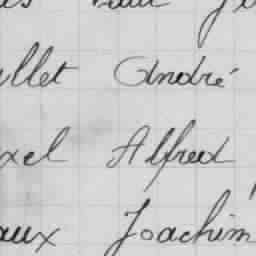 llet André
xel Alfred
aux Joachim